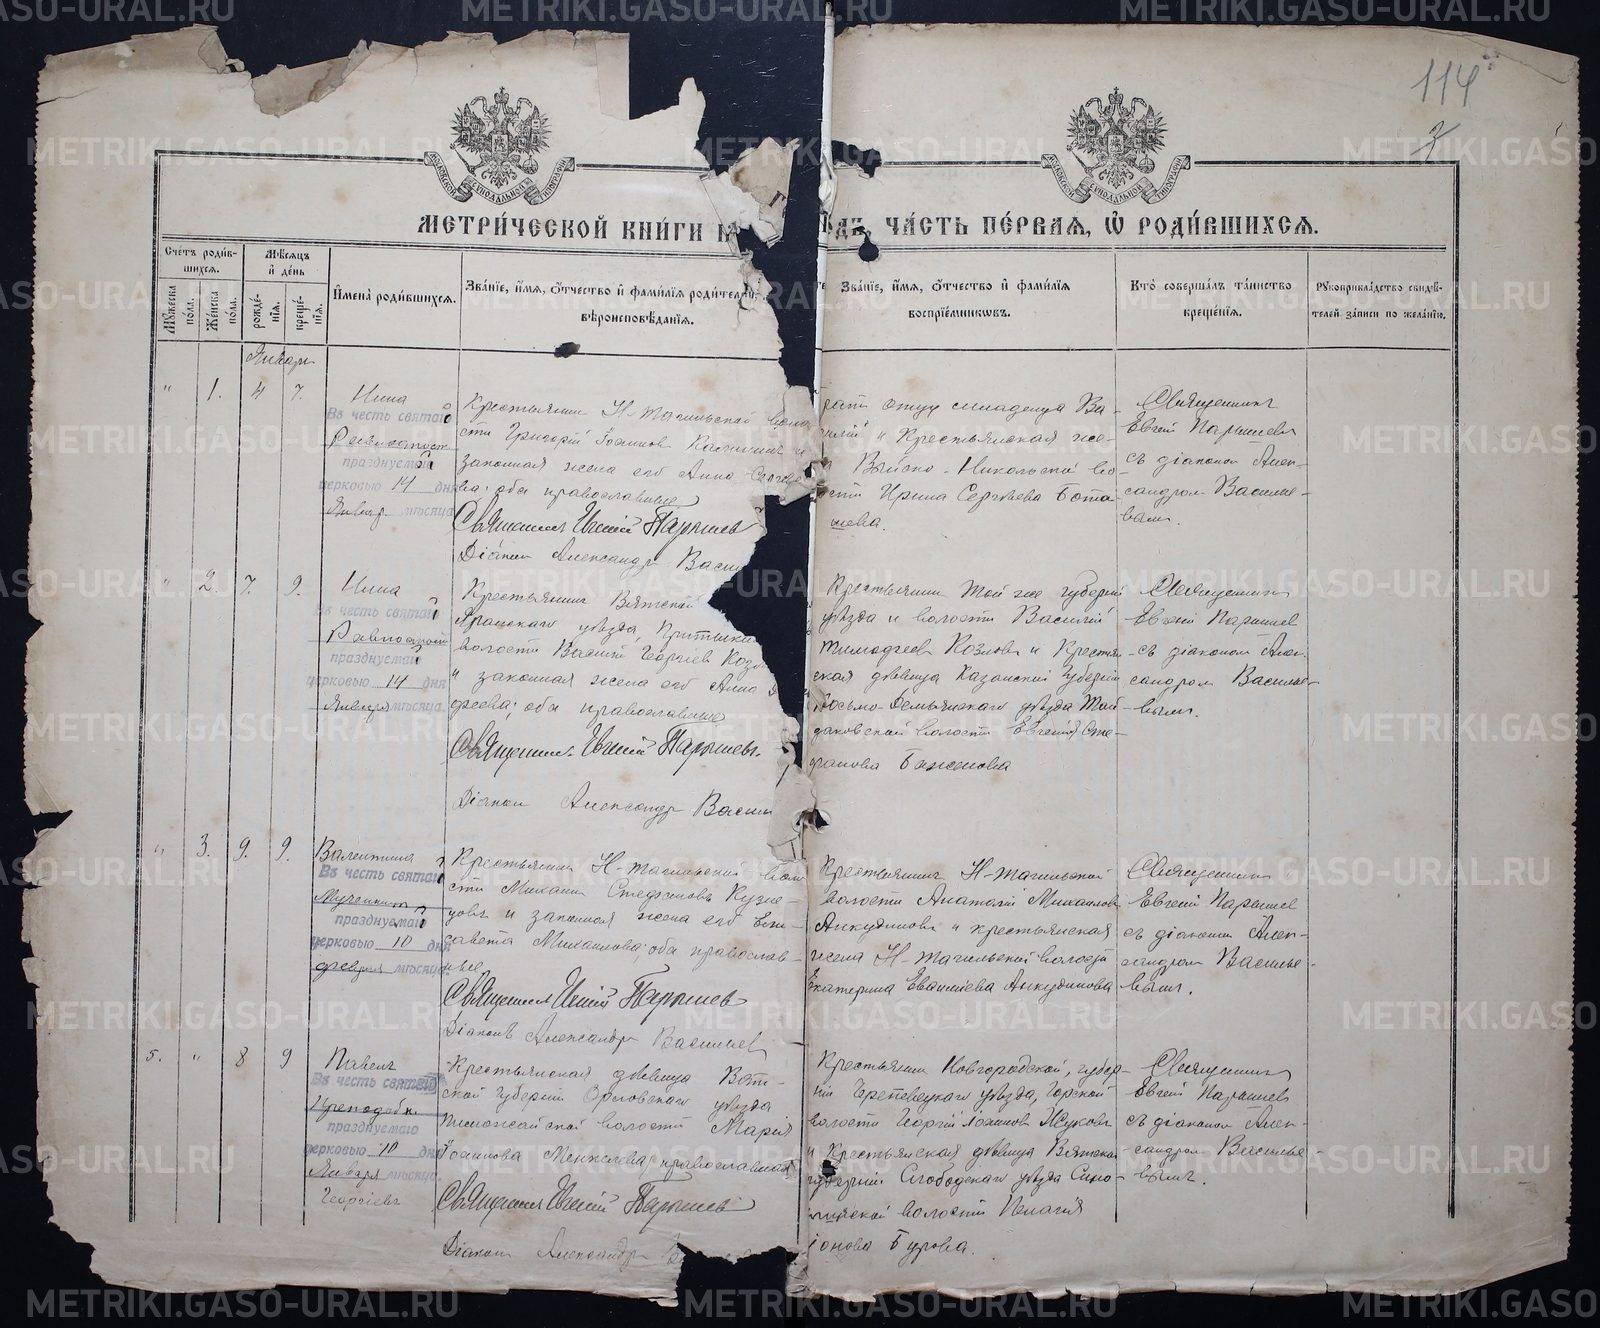 114
МЕТРИ́ЧЕСКОЙ КНИ́ГИ
ЧА́СТЬ ПЕ́РВАЯ, Ѡ РОДИ́ВШИХСЯ.
Сче́тъ роди́в-
шихся.
Мѣ́сяцъ
и де́нь
Му́жеска по́ла.
Же́нска по́ла.
рожде́-
нія.
креще́-
нія.
Имена̀ роди́вшихся.
Зва́ніе, и́мя, о́тчество и фами́лія родителей,
вѣроисповѣ́данія.
Зва́ніе, и́мя, о́тчество и фами́лія
воспрiе́мниковъ.
Кто̀ соверша́лъ та́инство
креще́нія.
Рукоприкла́дство свидѣ́-
телей за́писи по жела́нію.
Январь
" 1. 4 7.
Нина
Въ честь святой
Равноапост
празднуемой
церковью 14 дня
Январ. мѣсяца
Крестьянинъ Н-Тагильской воло
сти Григорій Іоаннов
законная жена его Анна Серге
ва; оба православные
Священникъ Евгеній Парышев
Діаконъ Александръ Васил
отцу младенца Ва-
и Крестьянская же-
Выйско-Никольской во-
сти Ирина Сергѣева Бота-
шева.
Священникъ
Евгеній Парышевъ
съ діаконом Алек-
сандром Василье-
вымъ.
" 2. 7. 9.
Нина
Въ честь святой
Равноапост
празднуемой
церковью 14 дня
Января мѣсяца
Крестьянинъ Вятской
Яранскаго уѣзда,
волости Василій Георгіев Коз
и законная жена его Анна
фѣева; оба православные
Священникъ Евгеній Парышевъ.
Діаконъ Александръ Васил
Крестьянинъ той же губерніи
уѣзда и волости Василій
Тимофѣев Козловъ и Крестья-
ская дѣвица Казанской губерніи
Козьмо-Демьянскаго уѣзда
волости Евгенія Сте-
фанова Баженова
Священникъ
Евгеній Парышев
съ діаконом Алек-
сандром Василье-
вымъ.
" 3. 9. 9.
Валентина
Въ честь святой
Мученицы
празднуемой
церковью 10 дня
февраля мѣсяца
Крестьянинъ Н-Тагильской воло
сти Михаилъ Стефановъ Кузне-
цовъ и законная жена его Ели-
савета Михаилова; оба православ-
ные
Священникъ Евгеній Парышев
Діаконъ Александръ Васильев
Крестьянинъ Н-Тагильской
волости Анатолій Михаилов
Анкудинов и крестьянская
жена Н-Тагильской волости
Екатерина Анкудинова
Священникъ
Евгеній Парышев
съ діаконом Алек-
сандром Василье-
вымъ.
5. " 8 9
Павелъ
Въ честь святаго
Преподобн.
празднуемаго
церковью 10 дня
Января мѣсяца.
Георгіевъ
Крестьянская дѣвица Вят-
ской губерніи Орловскаго уѣзда
волости Марія
Іоаннова православная
Священникъ Евгеній Парышев
Діаконъ Александръ
Крестьянинъ Новгородской губер-
ніи Череповецкаго уѣзда, Горской
волости Георгій Іоаннов Жуковъ
и Крестьянская дѣвица Вятской
губерніи Слободскаго уѣзда
волости Пелагія
Бурова.
Священникъ
Евгеній Парышев
съ діаконом Алек-
сандром Василье-
вымъ.
METRIKI.GASO-URAL.RU